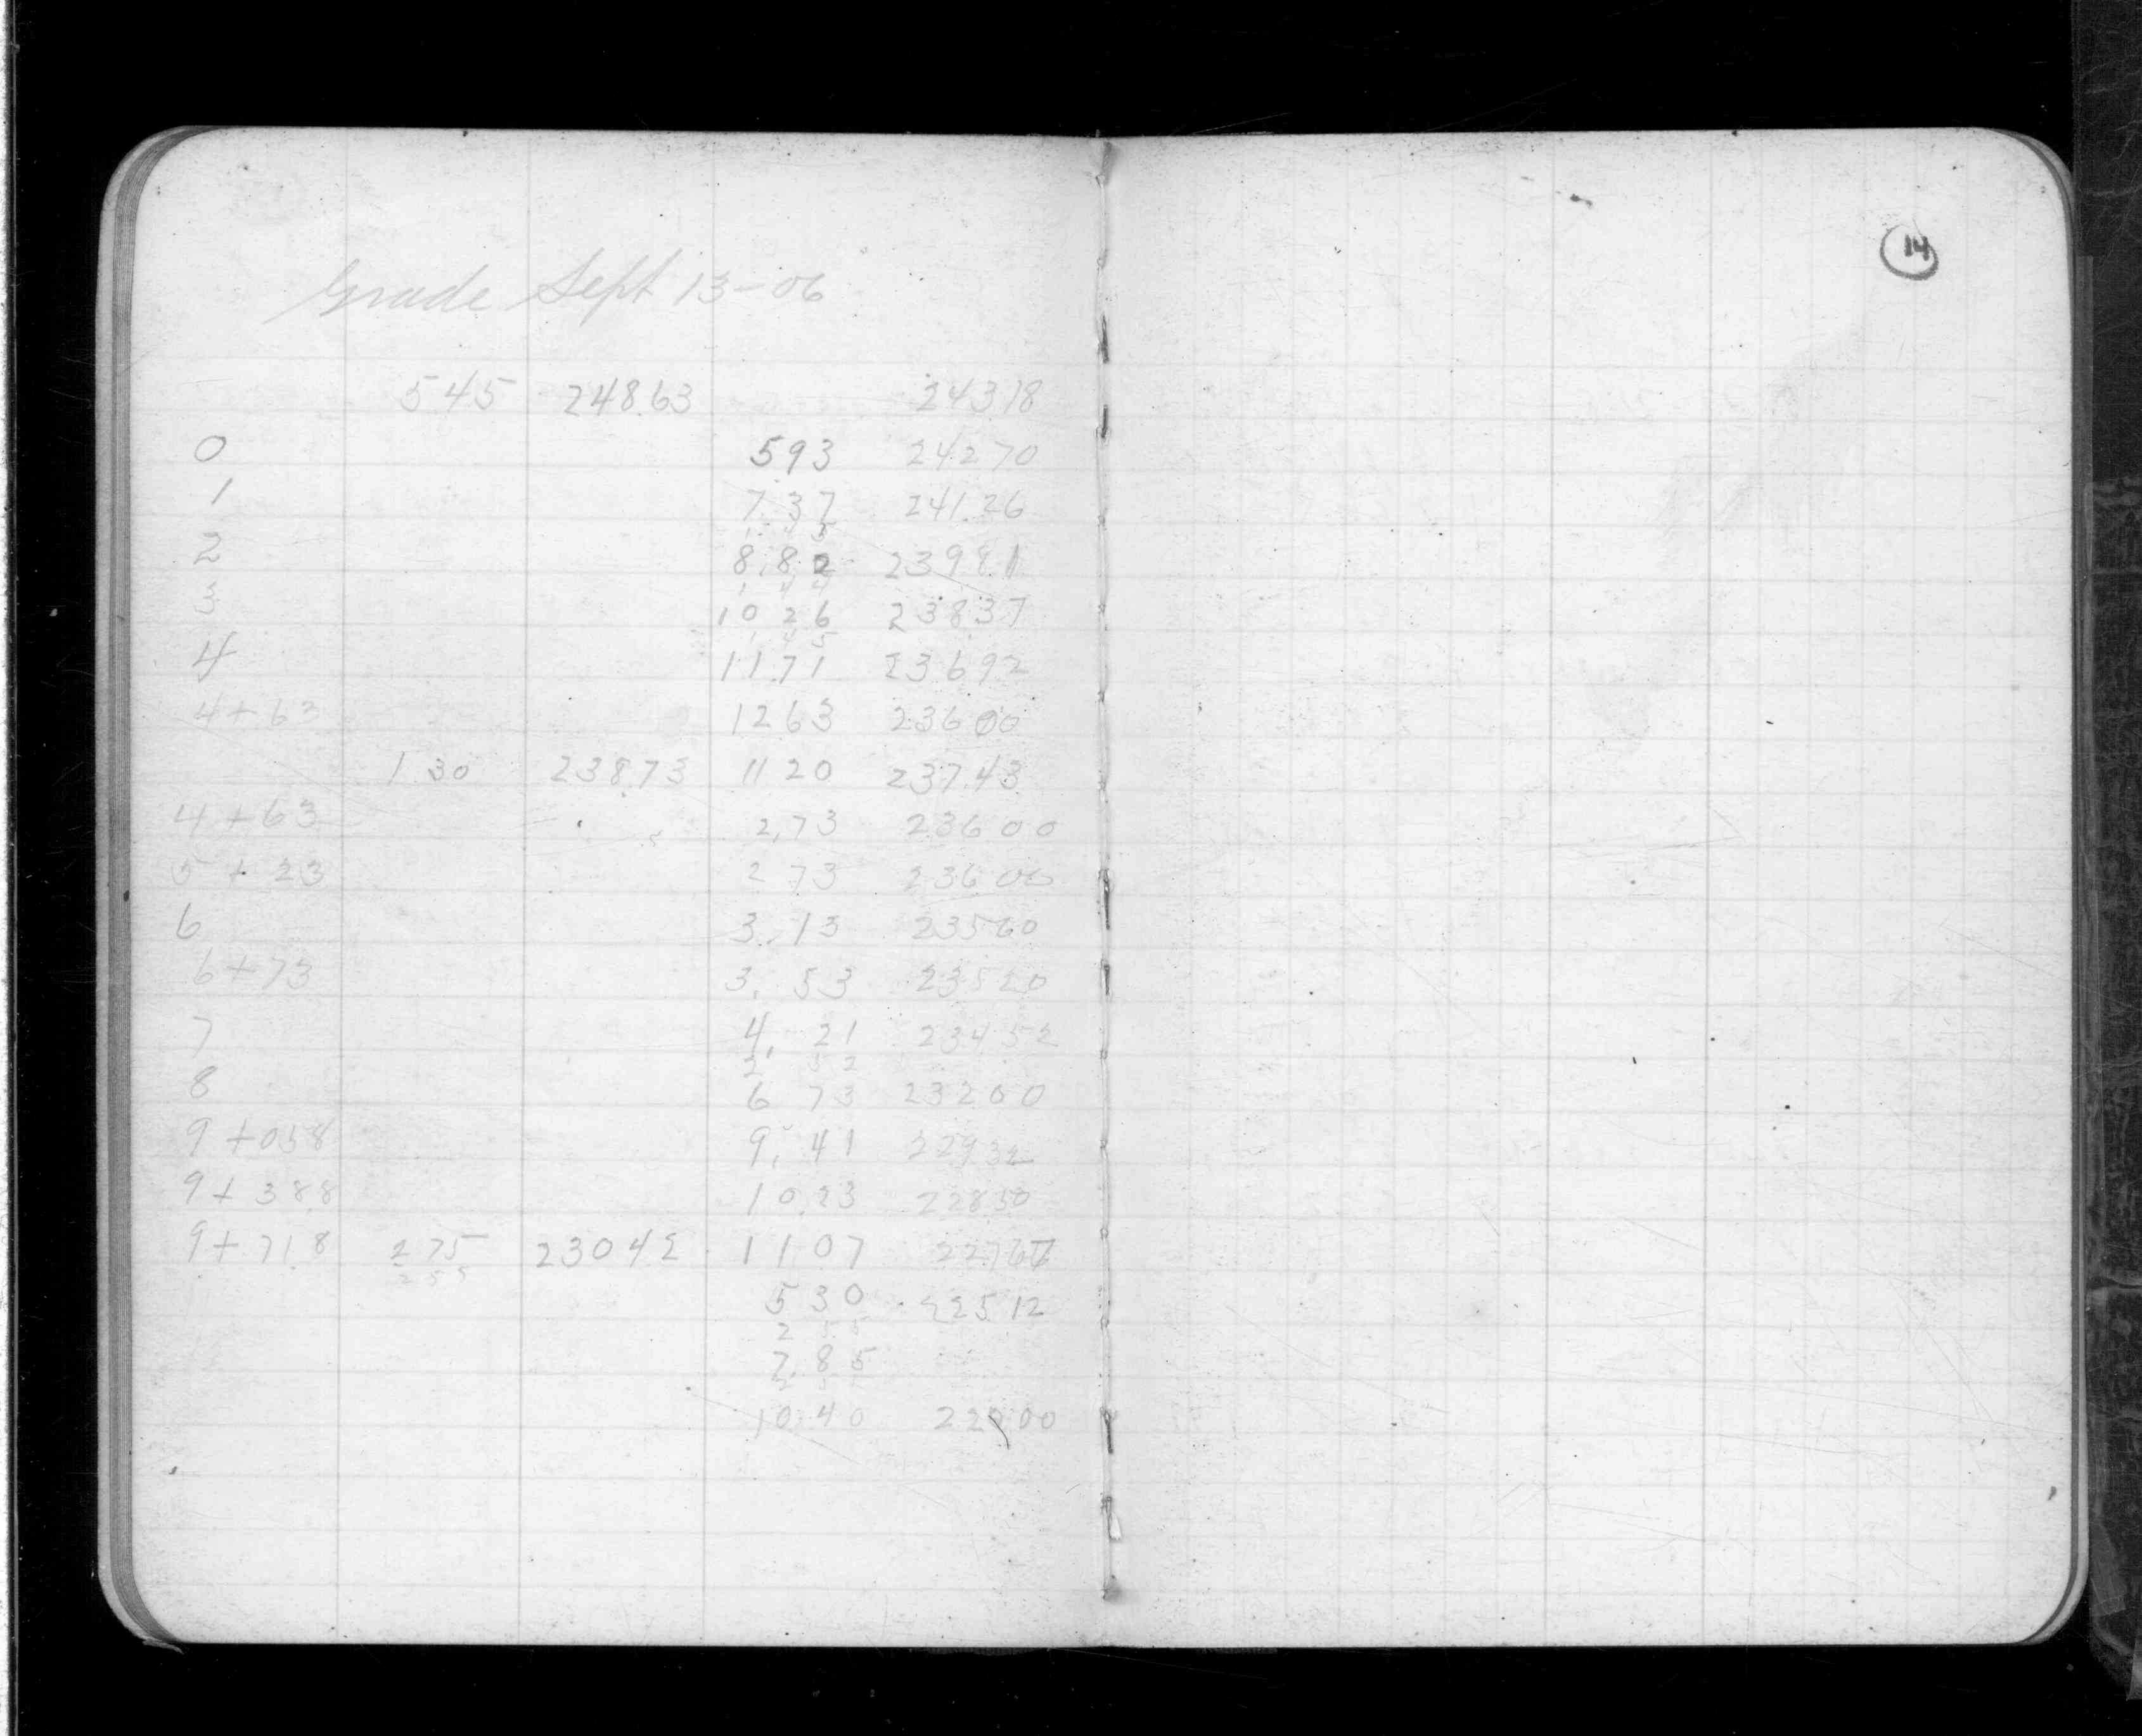 14
Grade Sept 13-06
545 248.63 24318
0 593 24270
1 7.37 241.26
1 4 5
2 8.82 23981
1 4 4
3 10 26 23837
1 4 5
4 11.71 23692
4+63 1263 23600
1.30 238.73 11 20 237.43
4+63 2,73 23600
5+23 2 73 23600
6 3.13 23560
6+73 3.53 23520
7 4.21 23452
2 52
8 6 73 23200
9+058 9.41 22932
9+388 10.23 22850
9+71.8 275 23042 1107
255
530 22512
2
7.85
10.40 22000